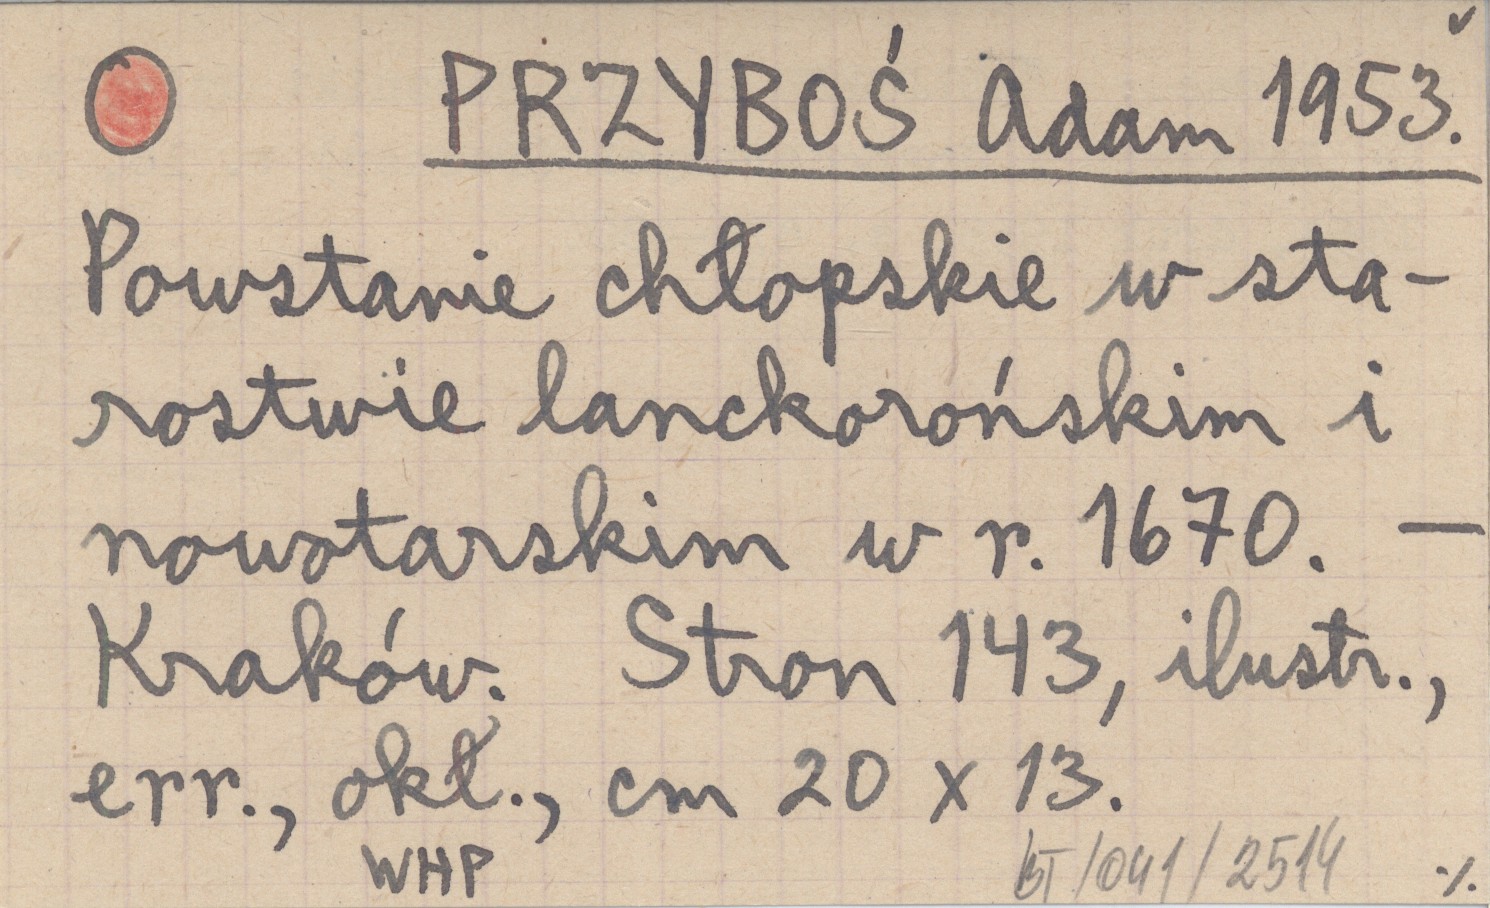 PRZYBOŚ Adam 1953.
Powstanie chłopskie w sta-
rostwie lanckorońskim i
nowotarskim w r. 1670. —
Kraków. Stron 143, ilustr.,
err., okł., cm 20 x 13.
WHP
BT/041/2514 ./.